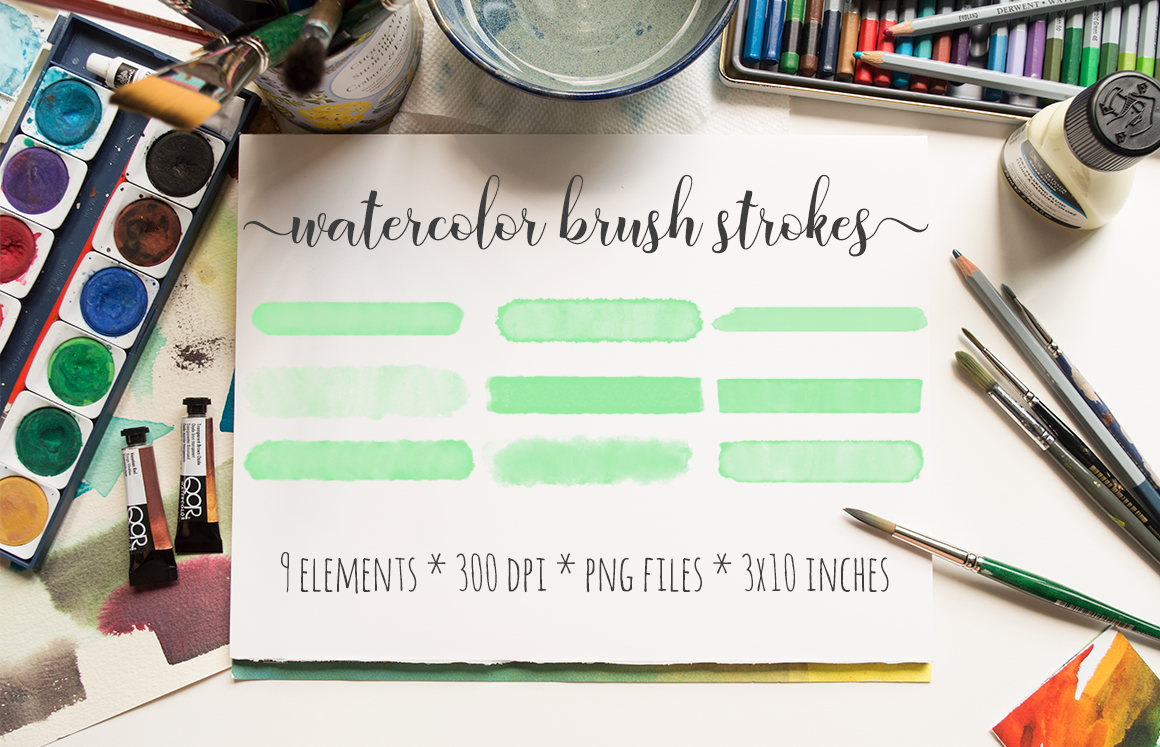 DERWENT
watercolor brush strokes
QOR
QOR
9 ELEMENTS * 300 DPI * PNG FILES * 3X10 INCHES